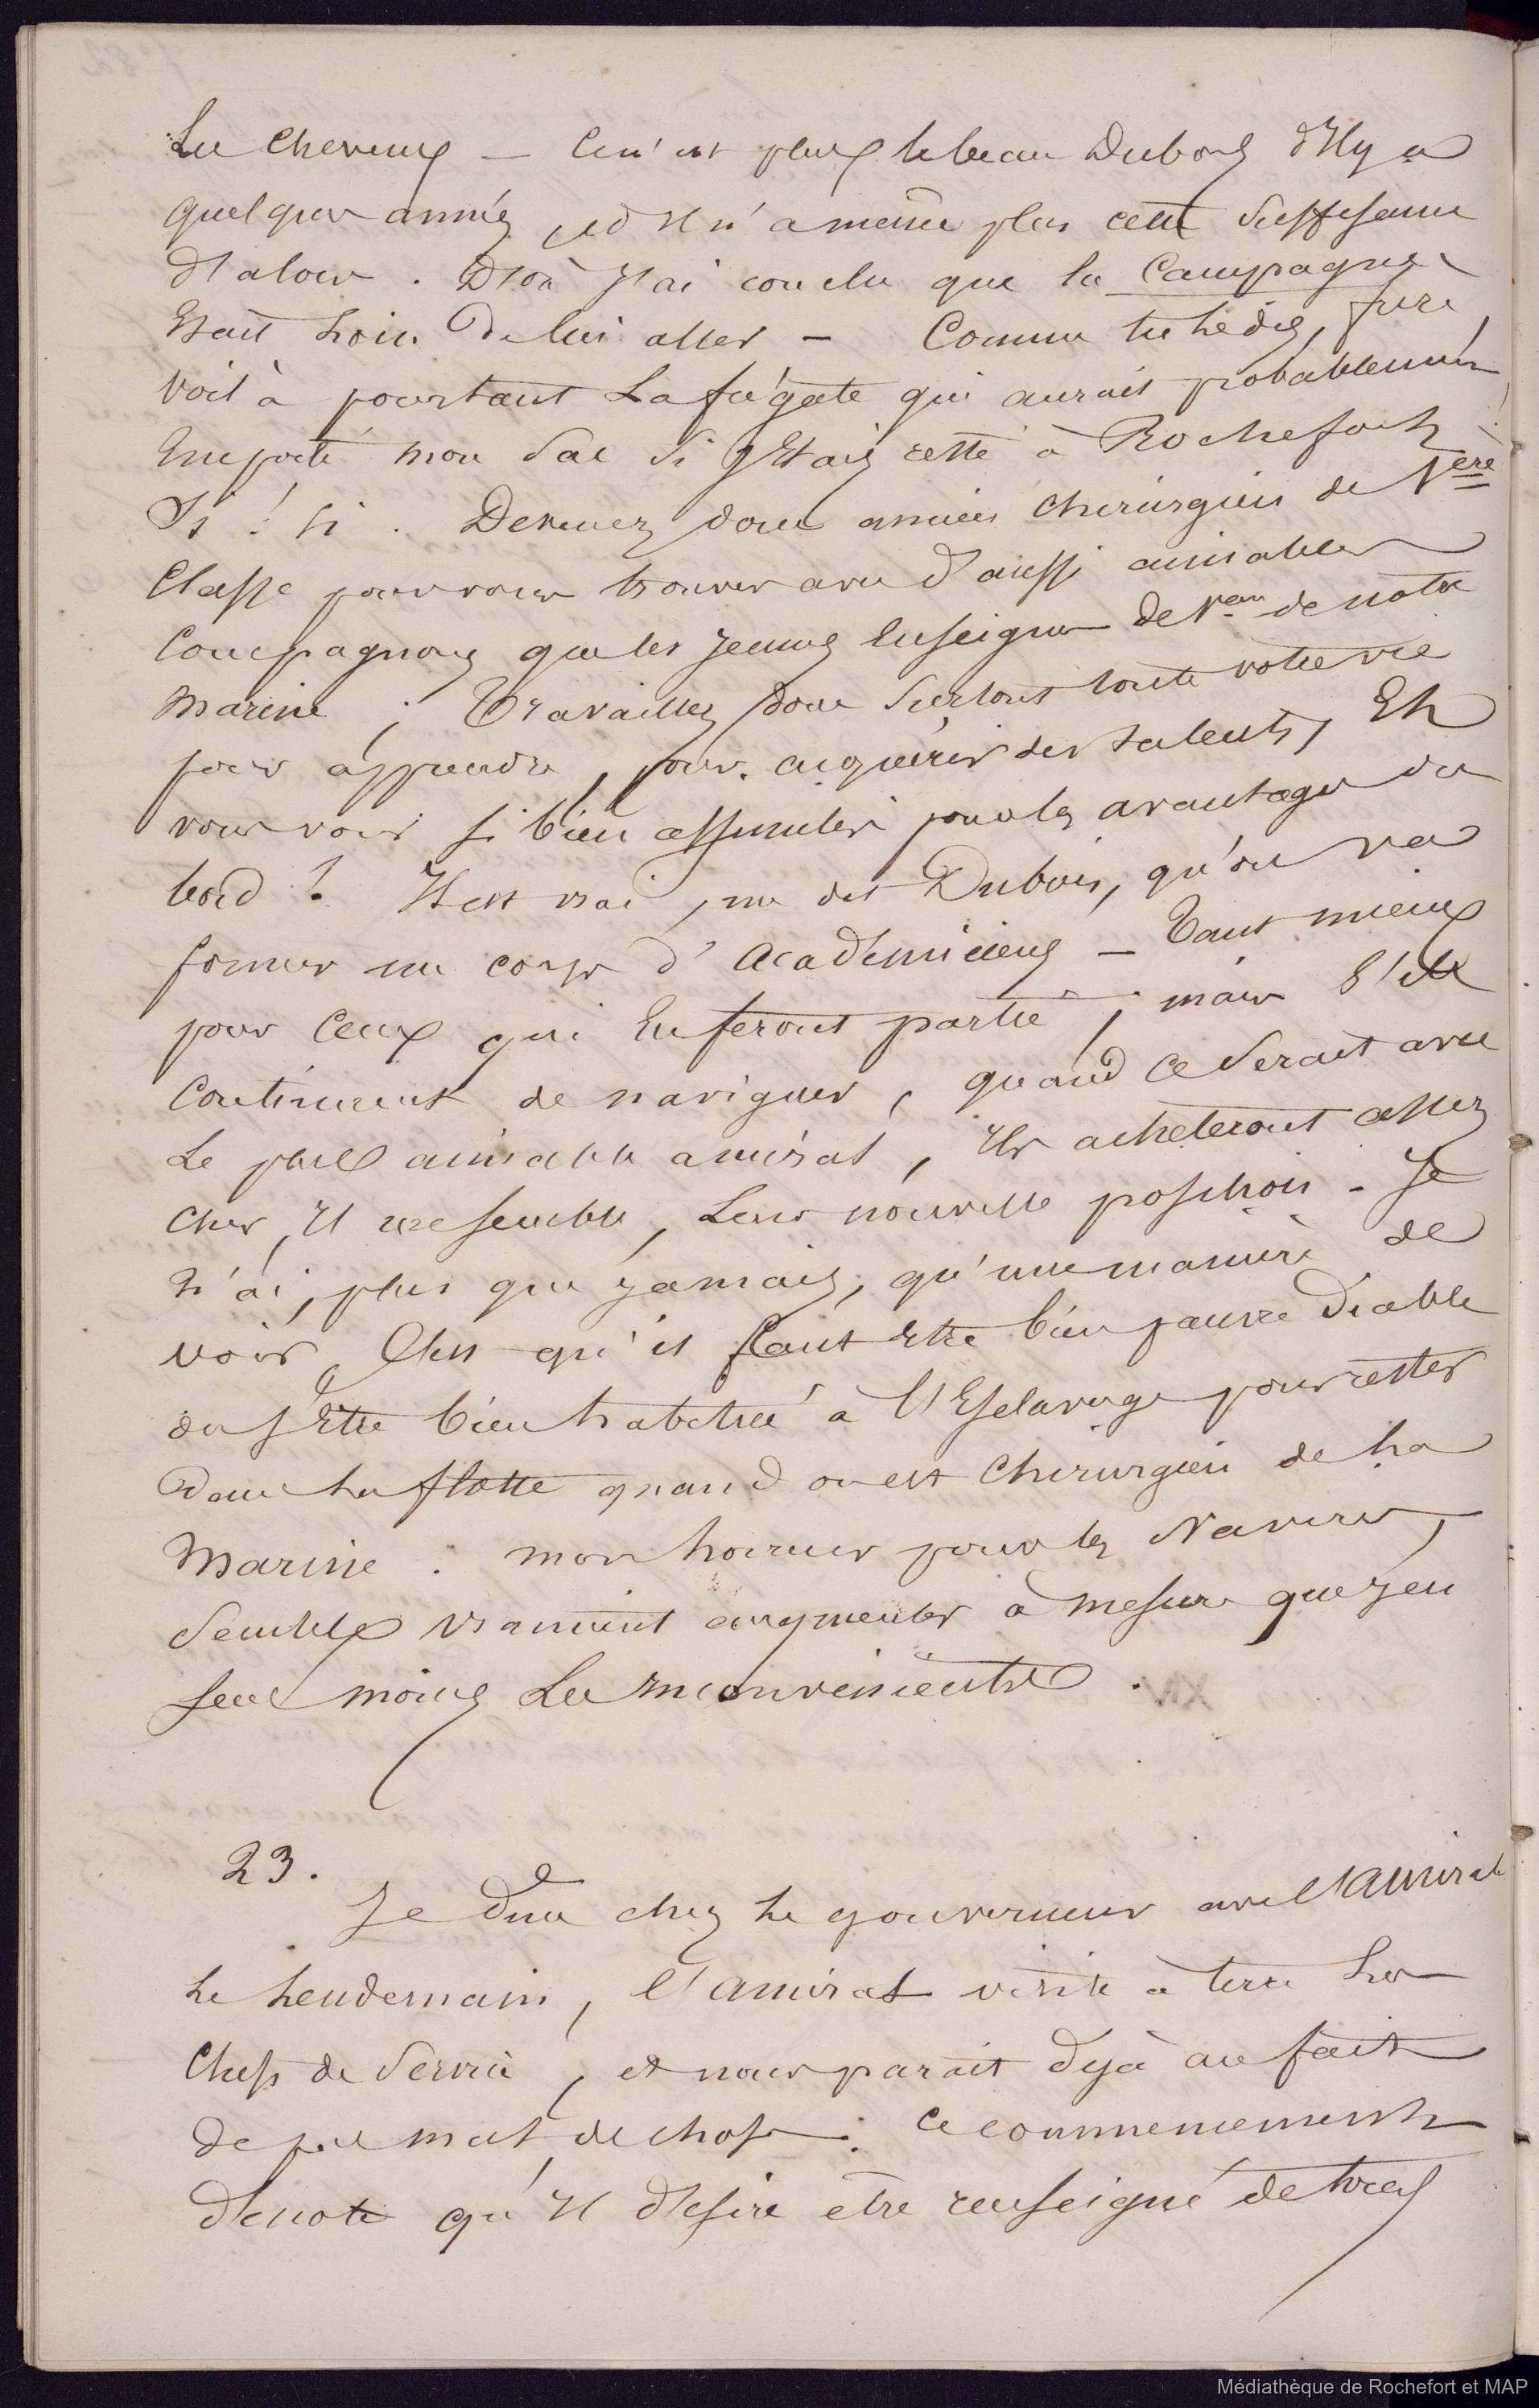 les cheveux — Ce n'est plus le beau Dubois d'Il y a
quelques années, et Il n'a même plus cette suffisance
d'alors. D'où J'ai conclu que la Campagne
Etait loin de lui aller — Comme tu le dis, frère,
voilà pourtant La frégate qui aurait probablement
Emporté mon sac si J'Etais resté à Rochefort
Devenez donc ancien chirurgien de 1ère
Classe pour vous trouver avec d'aussi aimables
Compagnons que les jeunes Enseignes de Veau de notre
marine ; Travaillez donc surtout toute votre vie
pour apprendre, pour acquérir des talents, Et
vous voir si bien assimilés pour les avantages du
bord ! Il est vrai, me dit Dubois, qu'on va
former un corps d'académiciens — Tant mieux
pour Ceux qui En feront partie ; mais s'ils
Continuent de naviguer, quand ce serait avec
Le plus aimable amiral, Ils achèteront assez
cher, Il me semble, Leur nouvelle position - Je
n'ai, plus que jamais, qu'une manière de
voir, C'est qu'il faut Etre bien pauvre diable
ou Etre bien habitué à l'Esclavage pour rester
dans la flotte quand on est chirurgien de la
marine. mon horreur pour les Navires,
semble vraiment augmenter à mesure que j'en
sens moins Les Inconvénients.
23.
Je dîne chez le gouverneur avec l'amiral
le lendemain, l'amiral visite à terre les
Chefs de service, et nous paraît déjà au fait
de pas mal de choses. Ce commencement
dénote qu'Il désire être renseigné de tous
Médiathèque de Rochefort et MAP